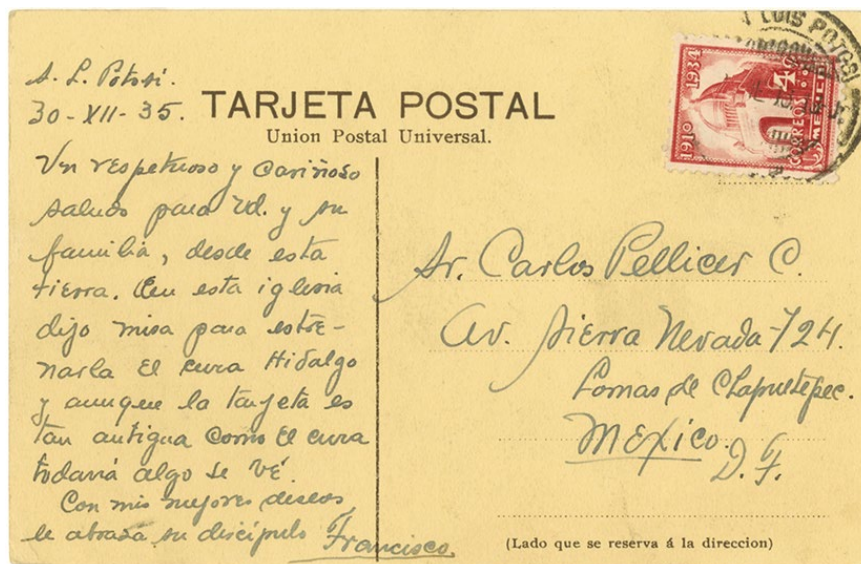 S. L. Potosí.
30-XII-35.
TARJETA POSTAL
Union Postal Universal.
Un respetuoso y cariñoso
saludo para Ud. y su
familia, desde esta
tierra. En esta iglesia
dijo misa para estre-
narla El cura Hidalgo
y aunque la tarjeta es
tan antigua como El cura
todavía algo se vé.
Con mis mejores deseos
le abraza su discípulo Francisco.
LUIS POTOSI
1910 1934
CORREOS
MEXICO
Sr. Carlos Pellicer C.
Av. Sierra Nevada-724.
Lomas de Chapultepec.
MExico.
D. F.
(Lado que se reserva á la direccion)